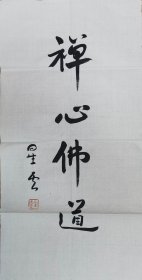 禅心佛道
星雲